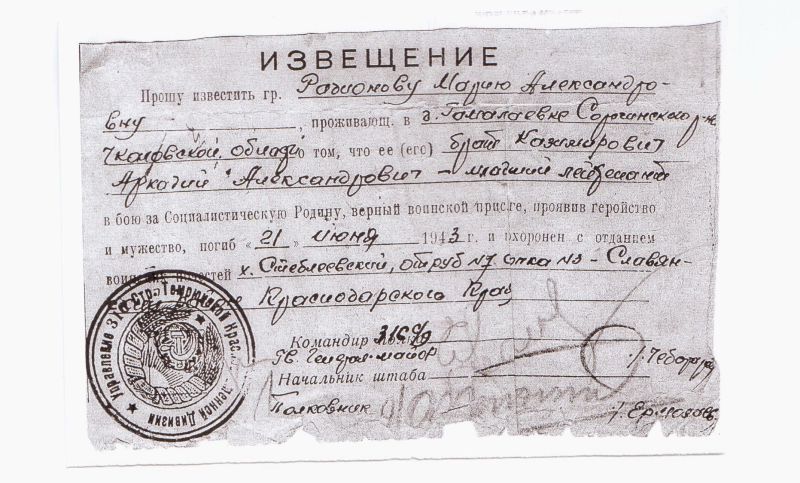 ИЗВЕЩЕНИЕ
Прошу известить гр. Радионову Марию Александро-
вну, проживающ. в д. Гамалаевке Сорочинского р-на
Чкаловской области о том, что ее (его) брат Казимирович
Аркадий Александрович - младший лейтенант
в бою за Социалистическую Родину, верный воинской присяге, проявив геройство
и мужество, погиб «21» июня 1943 г. и похоронен с отданием
почестей х. Стеблеевский, отруб №7 опка №3 - Славян-
Краснодарского Края
Командир 316 сд
Гв. Генерал-майор
Начальник штаба
Полковник /Ермолов/
Управление 316 Стр. Темрюкской Красно Дивизии